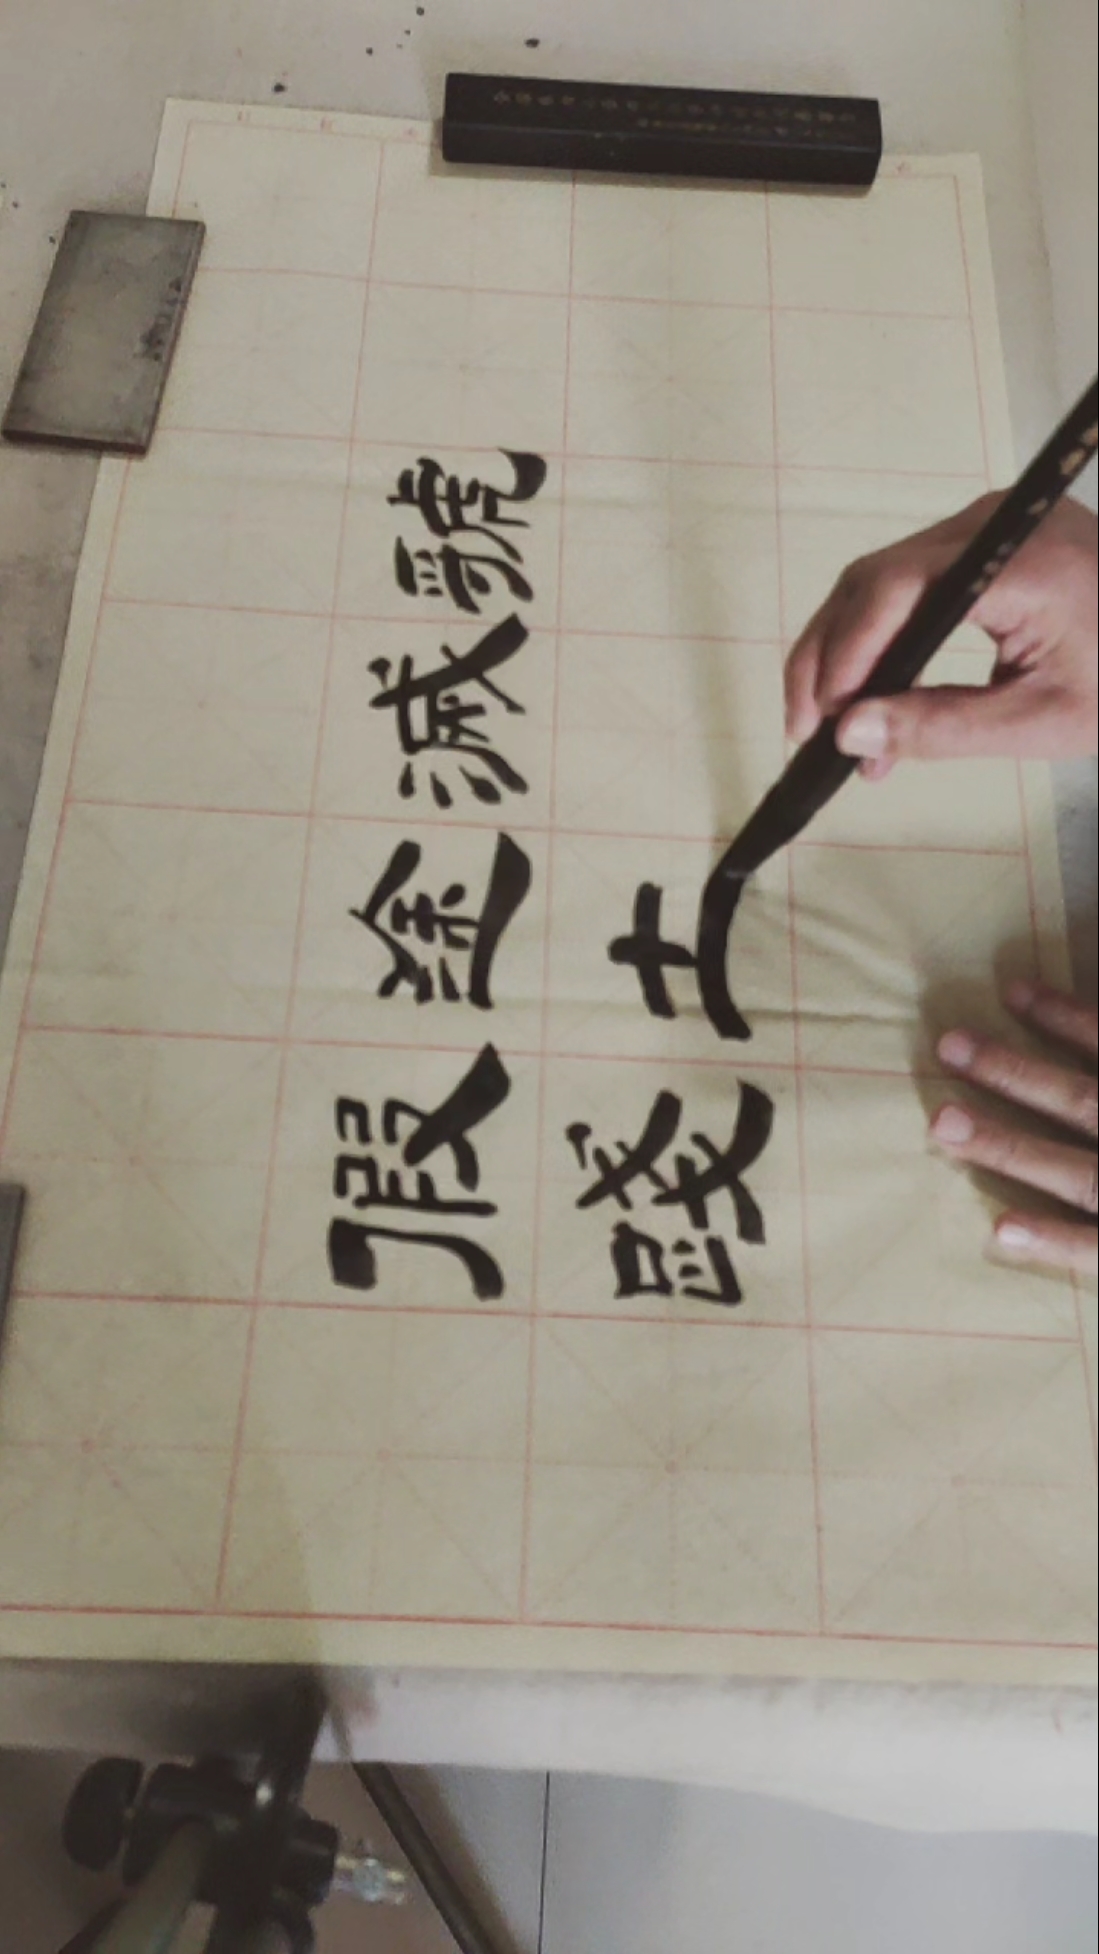 假途滅虢
踐土